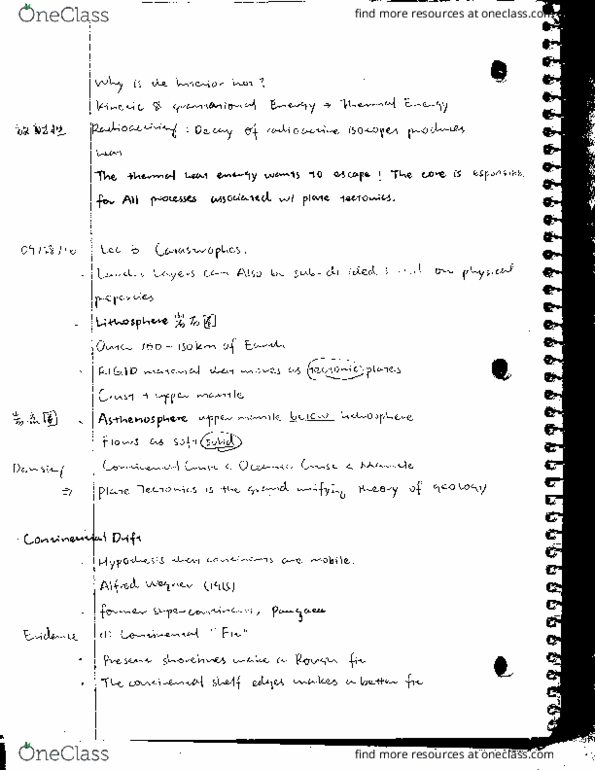 OneClass
find more resources at oneclass.com
Why is the Interior hot?
Kinetic & gravitational Energy → Thermal Energy
Radioactivity : Decay of radioactive isotopes produces
heat
The thermal heat energy wants to escape! The core is esponsible
for All processes associated w/ plate tectonics.
Lec 3 Catastrophes.
Layers can Also be sub-di ided on physical
properties
Lithosphere 岩石圈
Outer 100-150km of Earth
RIGID material that moves as tectonic plates
Crust + upper mantle
Asthenosphere upper mantle below lithosphere
Flows as soft solid
Density Continental Crust < Oceanic Crust < Mantle
⇒ Plate Tectonics is the grand unifying theory of geology
· Continental Drift
· Hypothesis that continents are mobile.
Alfred Wegner (1915)
· former supercontinent, Pangaea
Evidence (1) Continental "Fit"
· Present shorelines make a Rough fit
· The continental shelf edges makes a better fit
OneClass
find more resources at oneclass.com